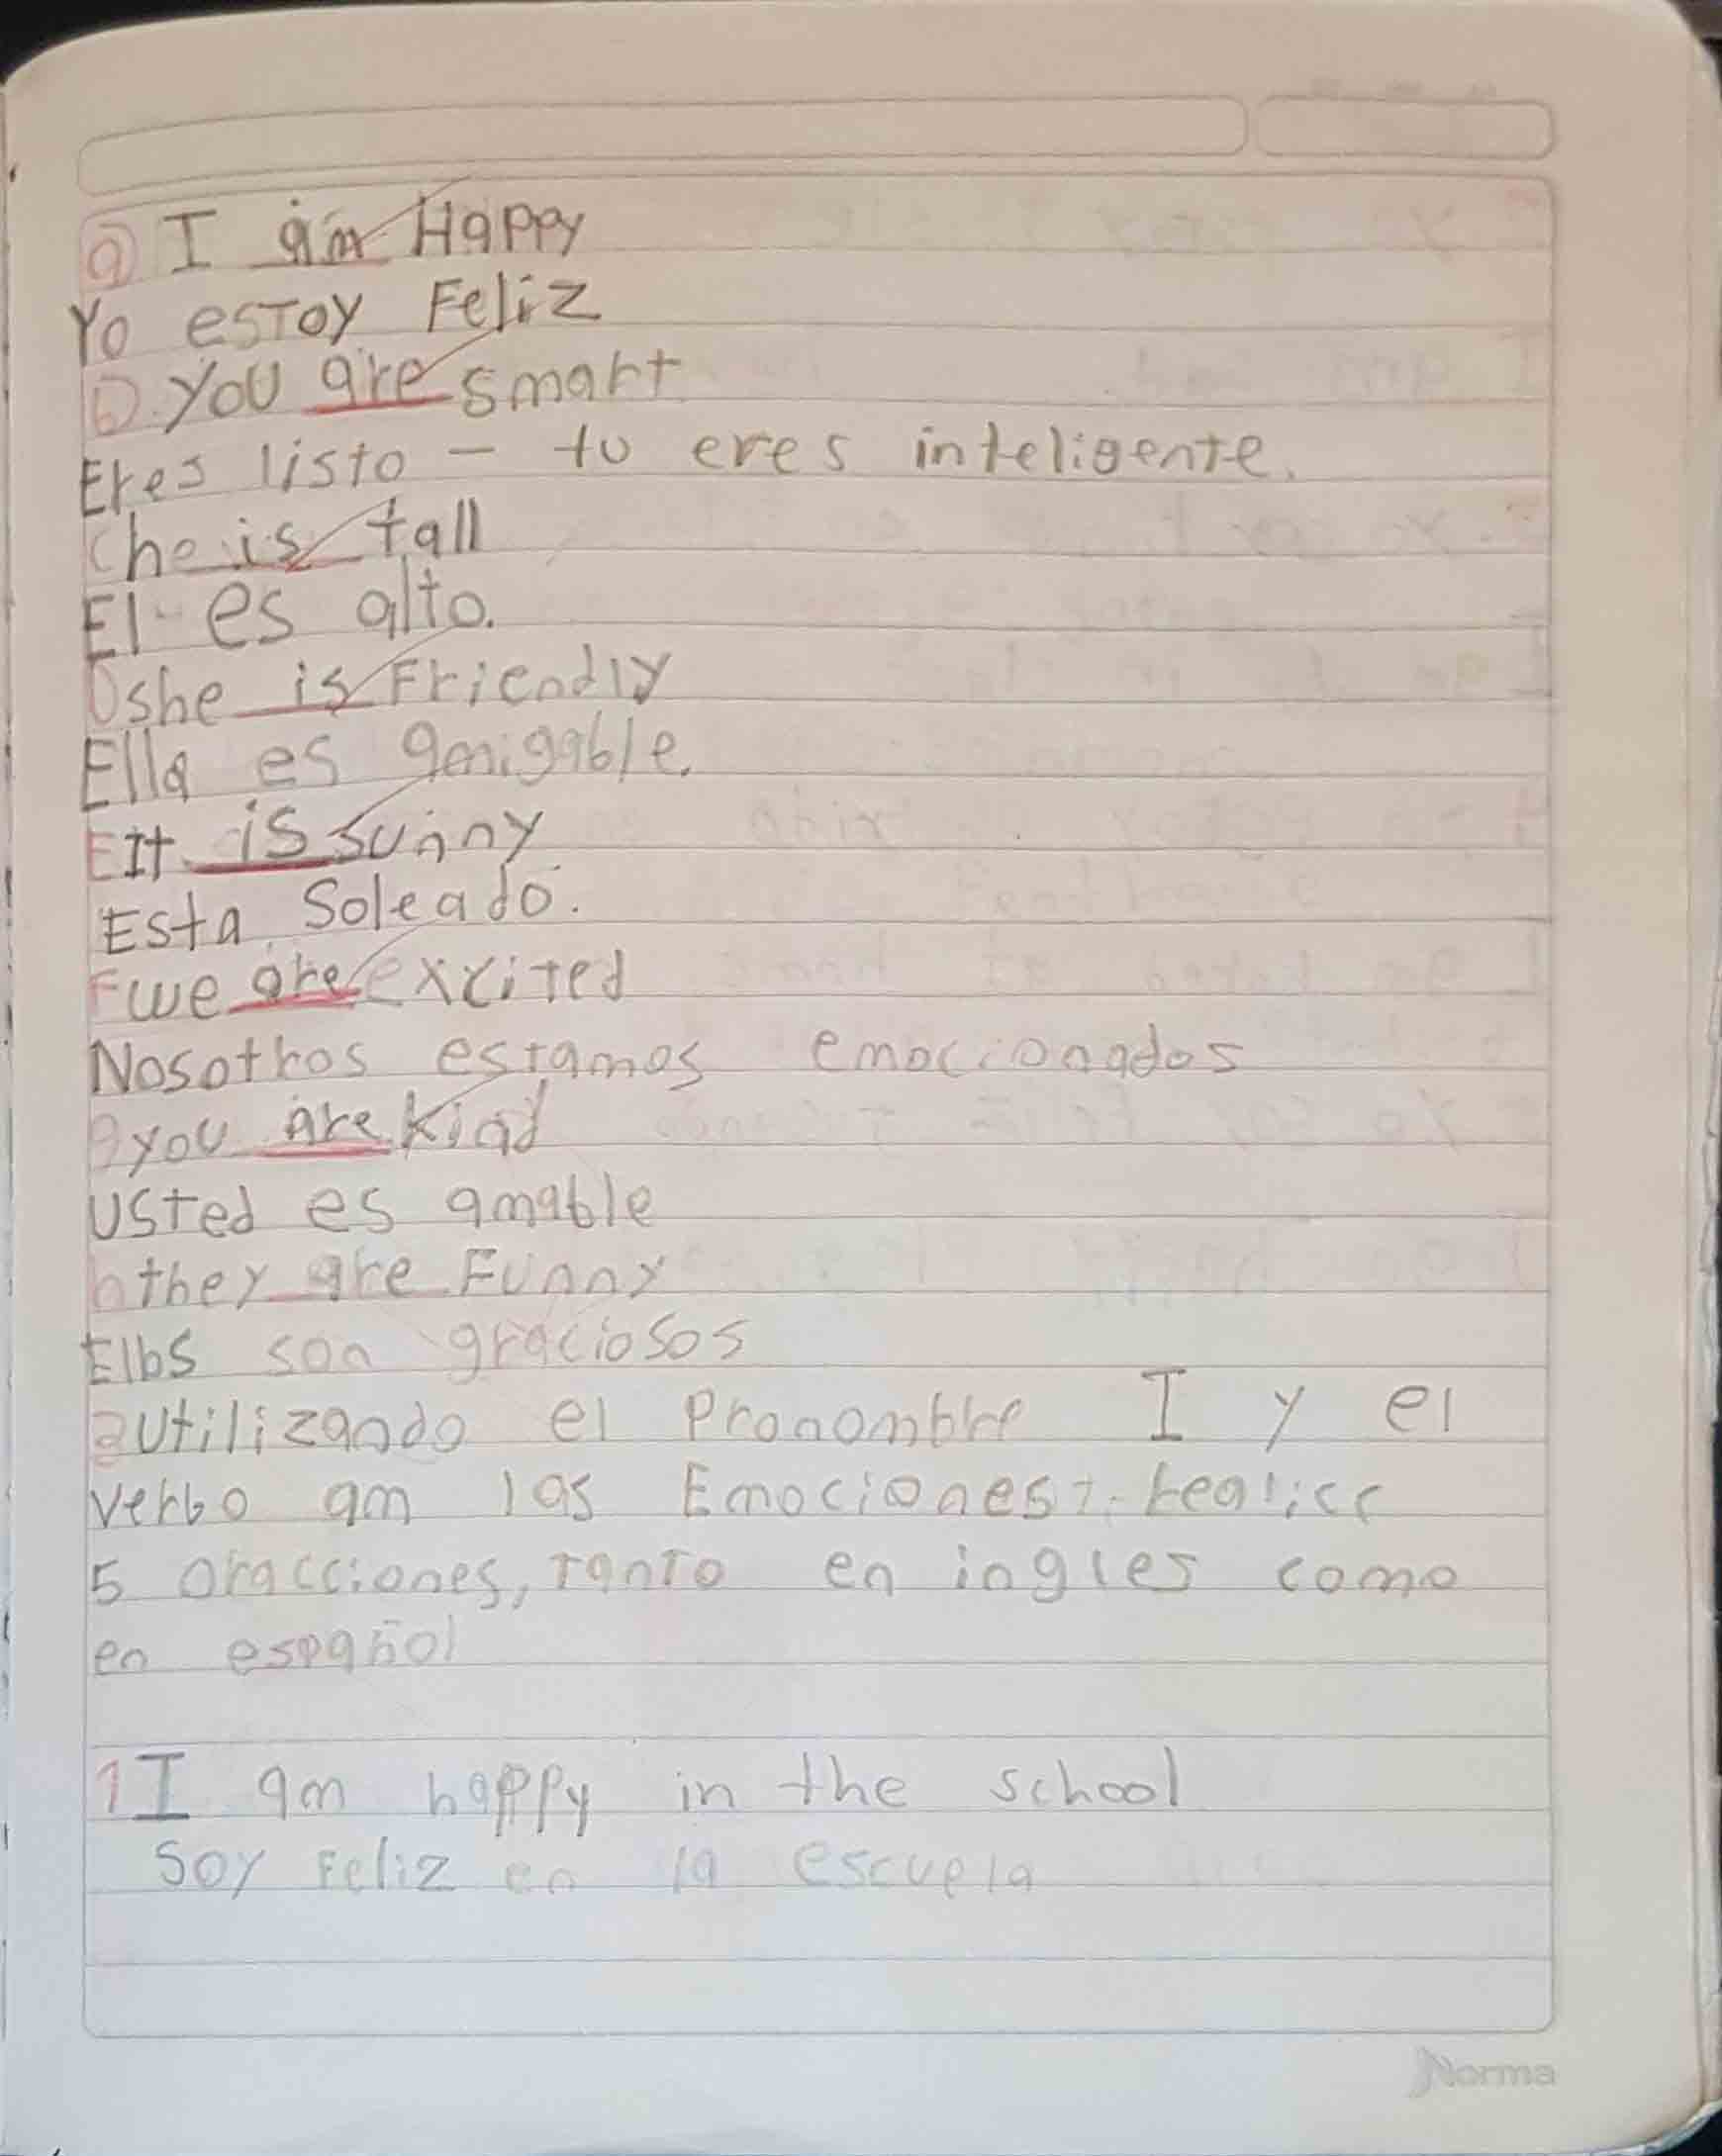 a) I am Happy
Yo estoy Feliz
b) you are smart
Eres listo - tu eres inteligente.
c he is tall
El es alto.
D she is Friendly
Ella es amigable.
E It is sunny
Esta Soleado.
F we are excited
Nosotros estamos emocionados
g you are kind
Usted es amable
h they are Funny
Ellos son graciosos
2 utilizando el Pronombre I y el
verbo am las Emociones
5 oracciones, tanto en ingles como
en español
1 I am happy in the school
Soy Feliz en la escuela
Norma